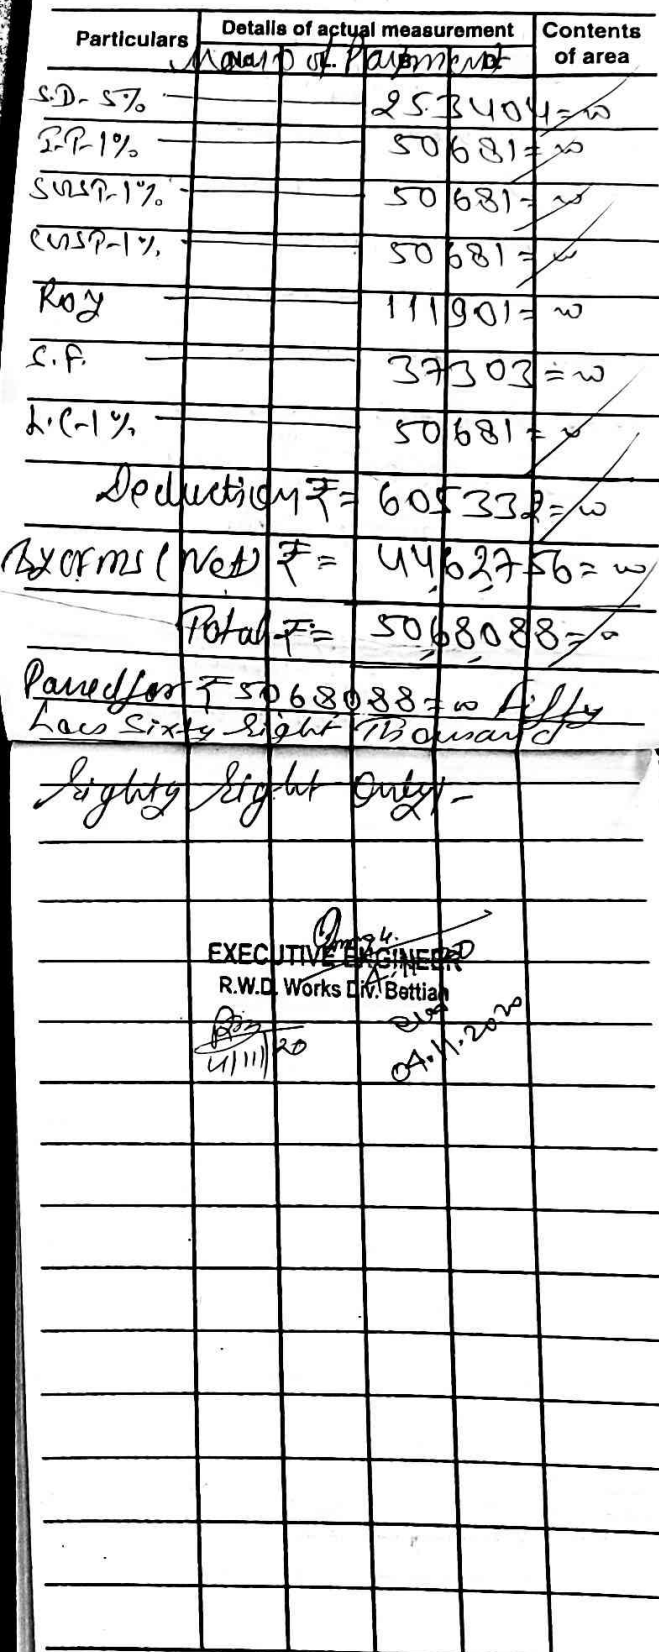 Particulars Details of actual measurement Contents of area
Memo of Payment
S.D- 5% 253404=00
I.T-1% 50681=00
SGST-1% 50681=00
CGST-1% 50681=00
Roy 111901=00
S.F. 37303=00
L.C-1% 50681=00
Deduction ₹= 605332=00
By orms (Net) ₹= 4462756=00
Total ₹= 5068088=00
Passed for ₹ 5068088=00 Fifty
Lacs Sixty Eight Thousand
Eighty Eight Only/-
EXECUTIVE ENGINEER
R.W.D. Works Div. Bettiah
4/11/20
04.11.2020